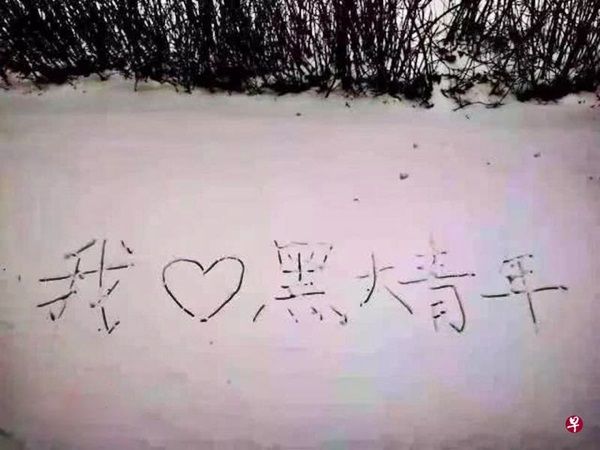 我♡黑大青年
早